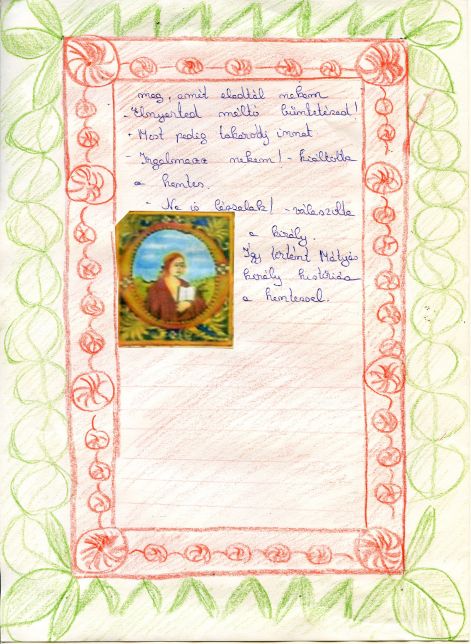 meg, amit eladtál nekem
- Elnyerted méltó büntetésed!
- Most pedig takarodj innet
- Irgalmazz nekem! - kiáltotta
a hentes.
- Ne is lássalak! - válaszolta
a király.
Így történt Mátyás
király históriás
a hentessel.